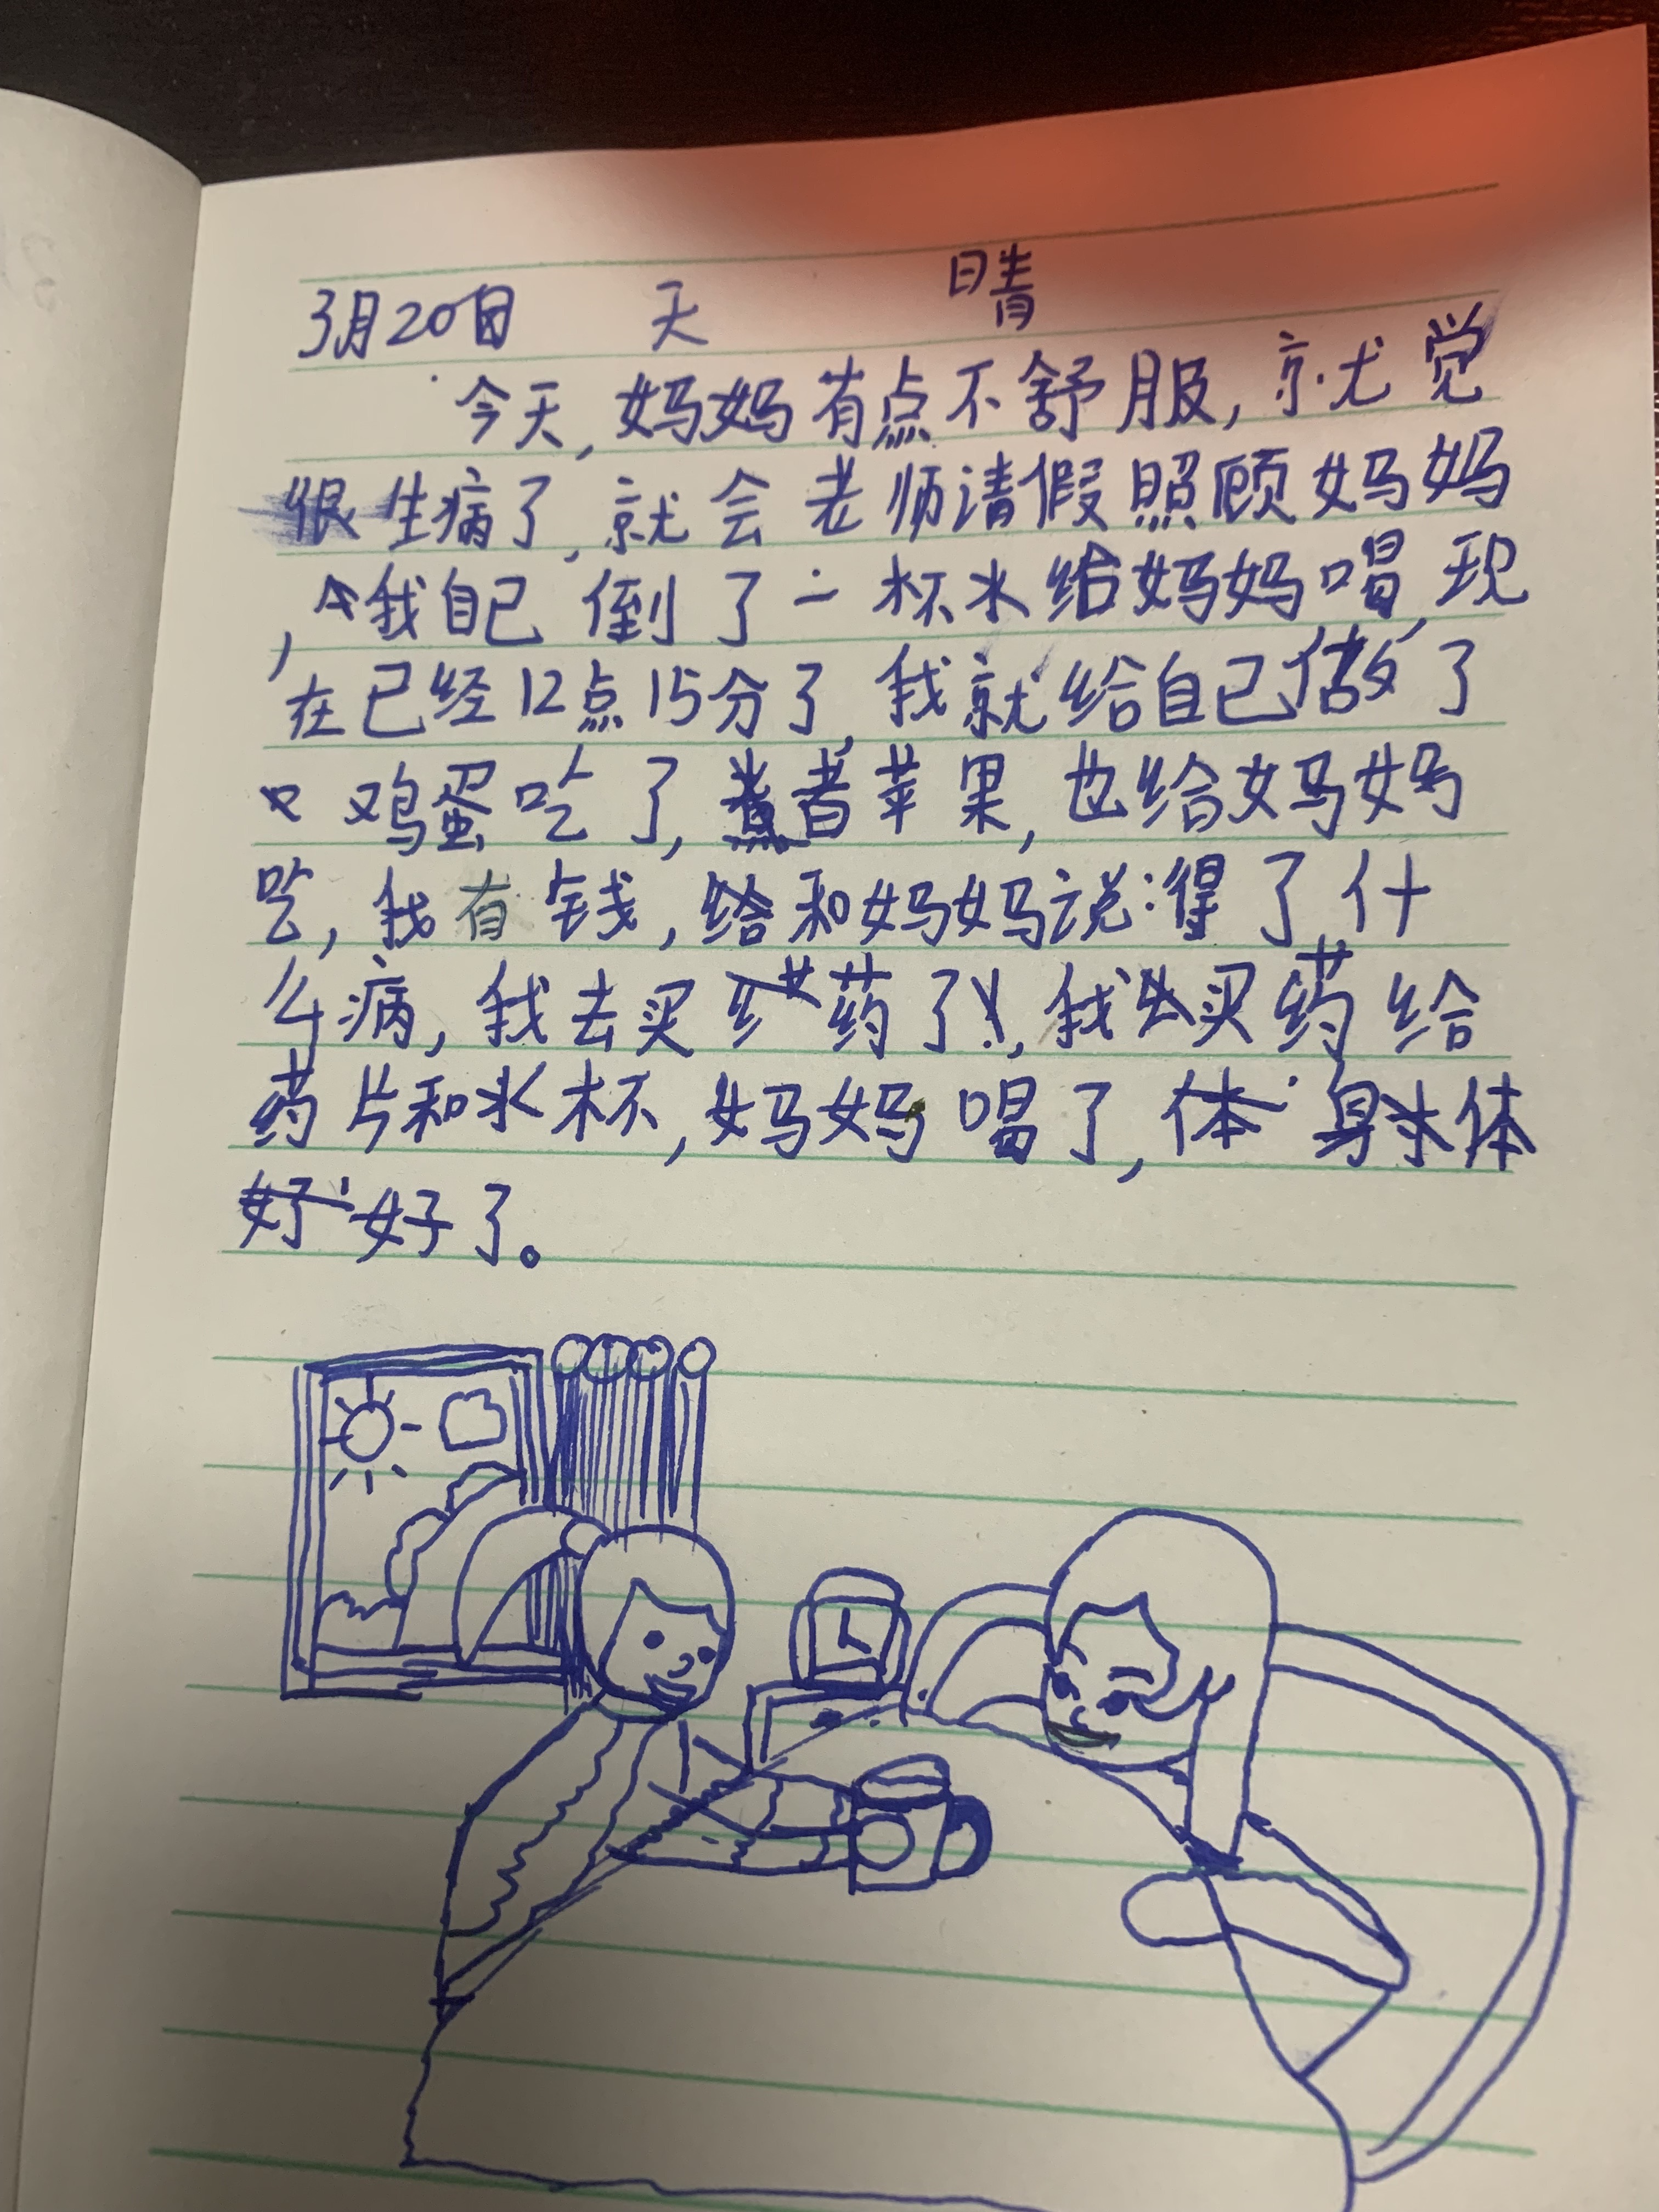 3月20日 天 晴
今天,妈妈有点不舒服,就觉
很生病了,就会老师请假照顾妈妈
,我自己倒了一杯水给妈妈喝,现
在已经12点15分了,我就给自己做了
鸡蛋吃了,煮着苹果,也给妈妈
吃,我有钱,给和妈妈说:得了什
么病,我去买药了,我去买药给
药片和水杯,妈妈喝了,身体
好了。